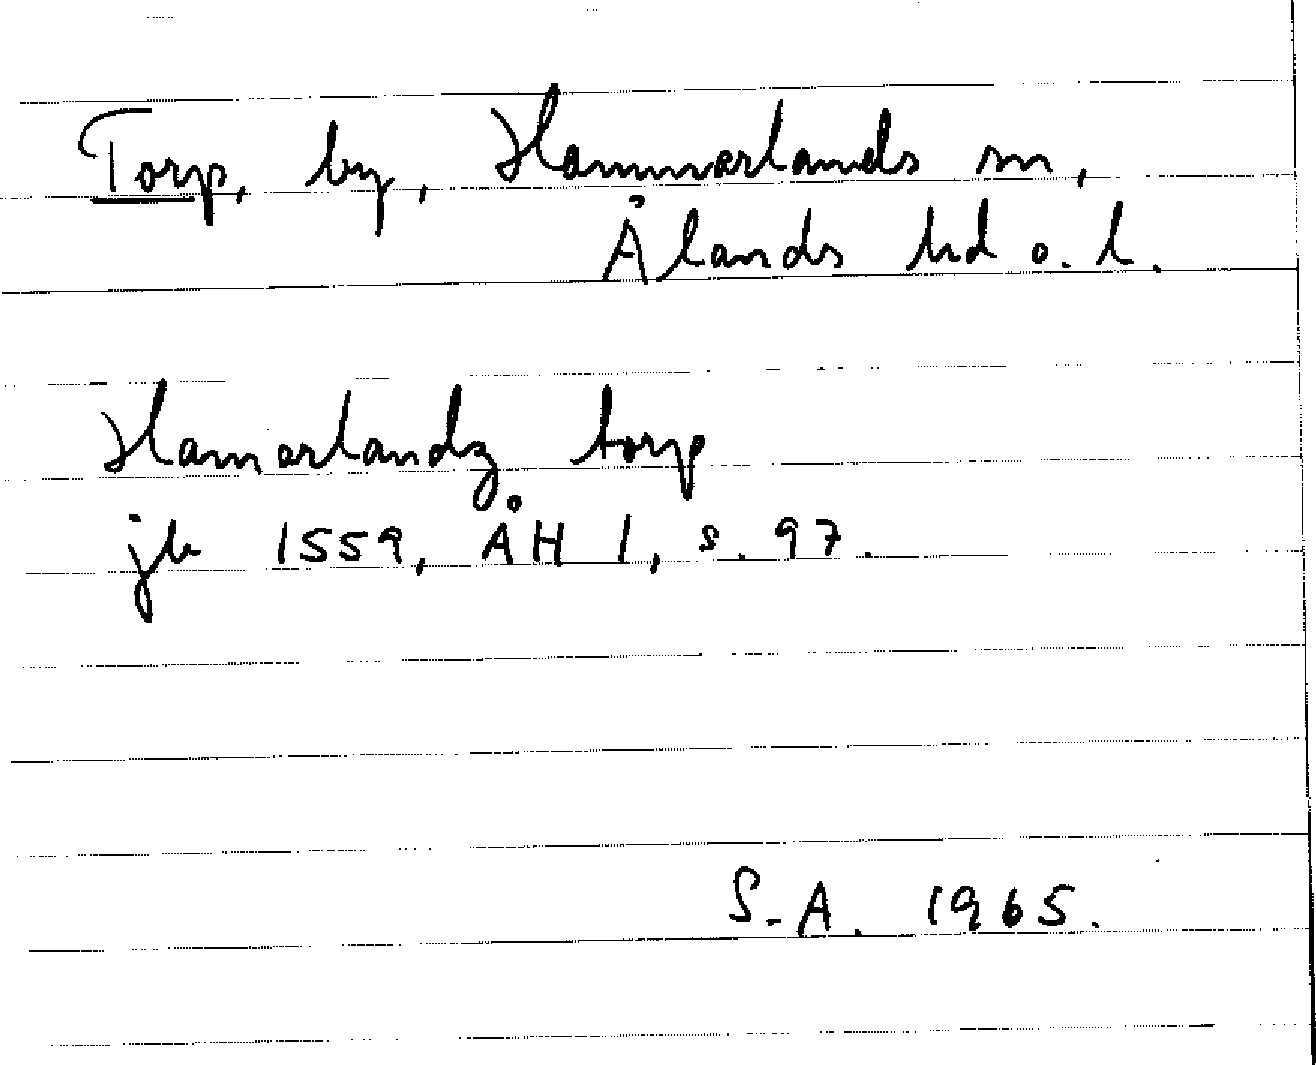 Torp, by, Hammarlands sn,
Ålands hd o. l.
Hamarlandz torp
jb 1559, ÅH I, s. 97.
S-A. 1965.